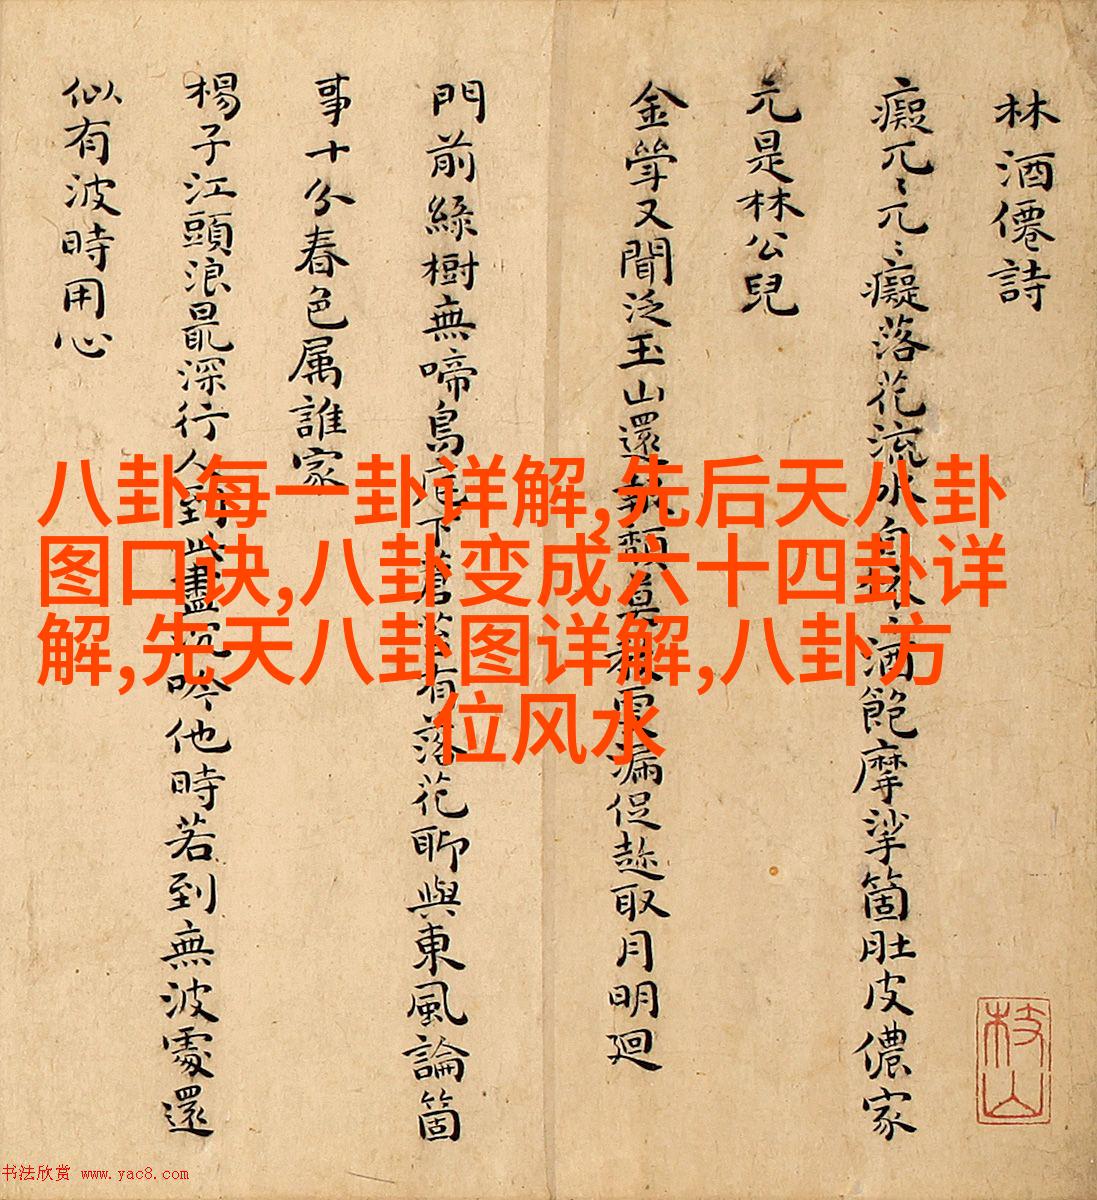 林酒僊詩
癡兀〻兀〻癡落花流水自酒飽摩挲箇肚皮儂家
元是林公兒
金斝又聞泛玉山還頹莫更漏促趂取月明迴
門前緑樹無啼鳥庭下蒼苔有落花聊與東風論箇
事十分春色属誰家
楊子江頭浪最深行人到此盡沉吟他時若到無波處還
似有波時用心
枝山
八卦每一卦详解,先后天八卦
图口诀,八卦变成六十四卦详
解,先天八卦图详解,八卦方
位风水
书法欣赏 www.yac8.com